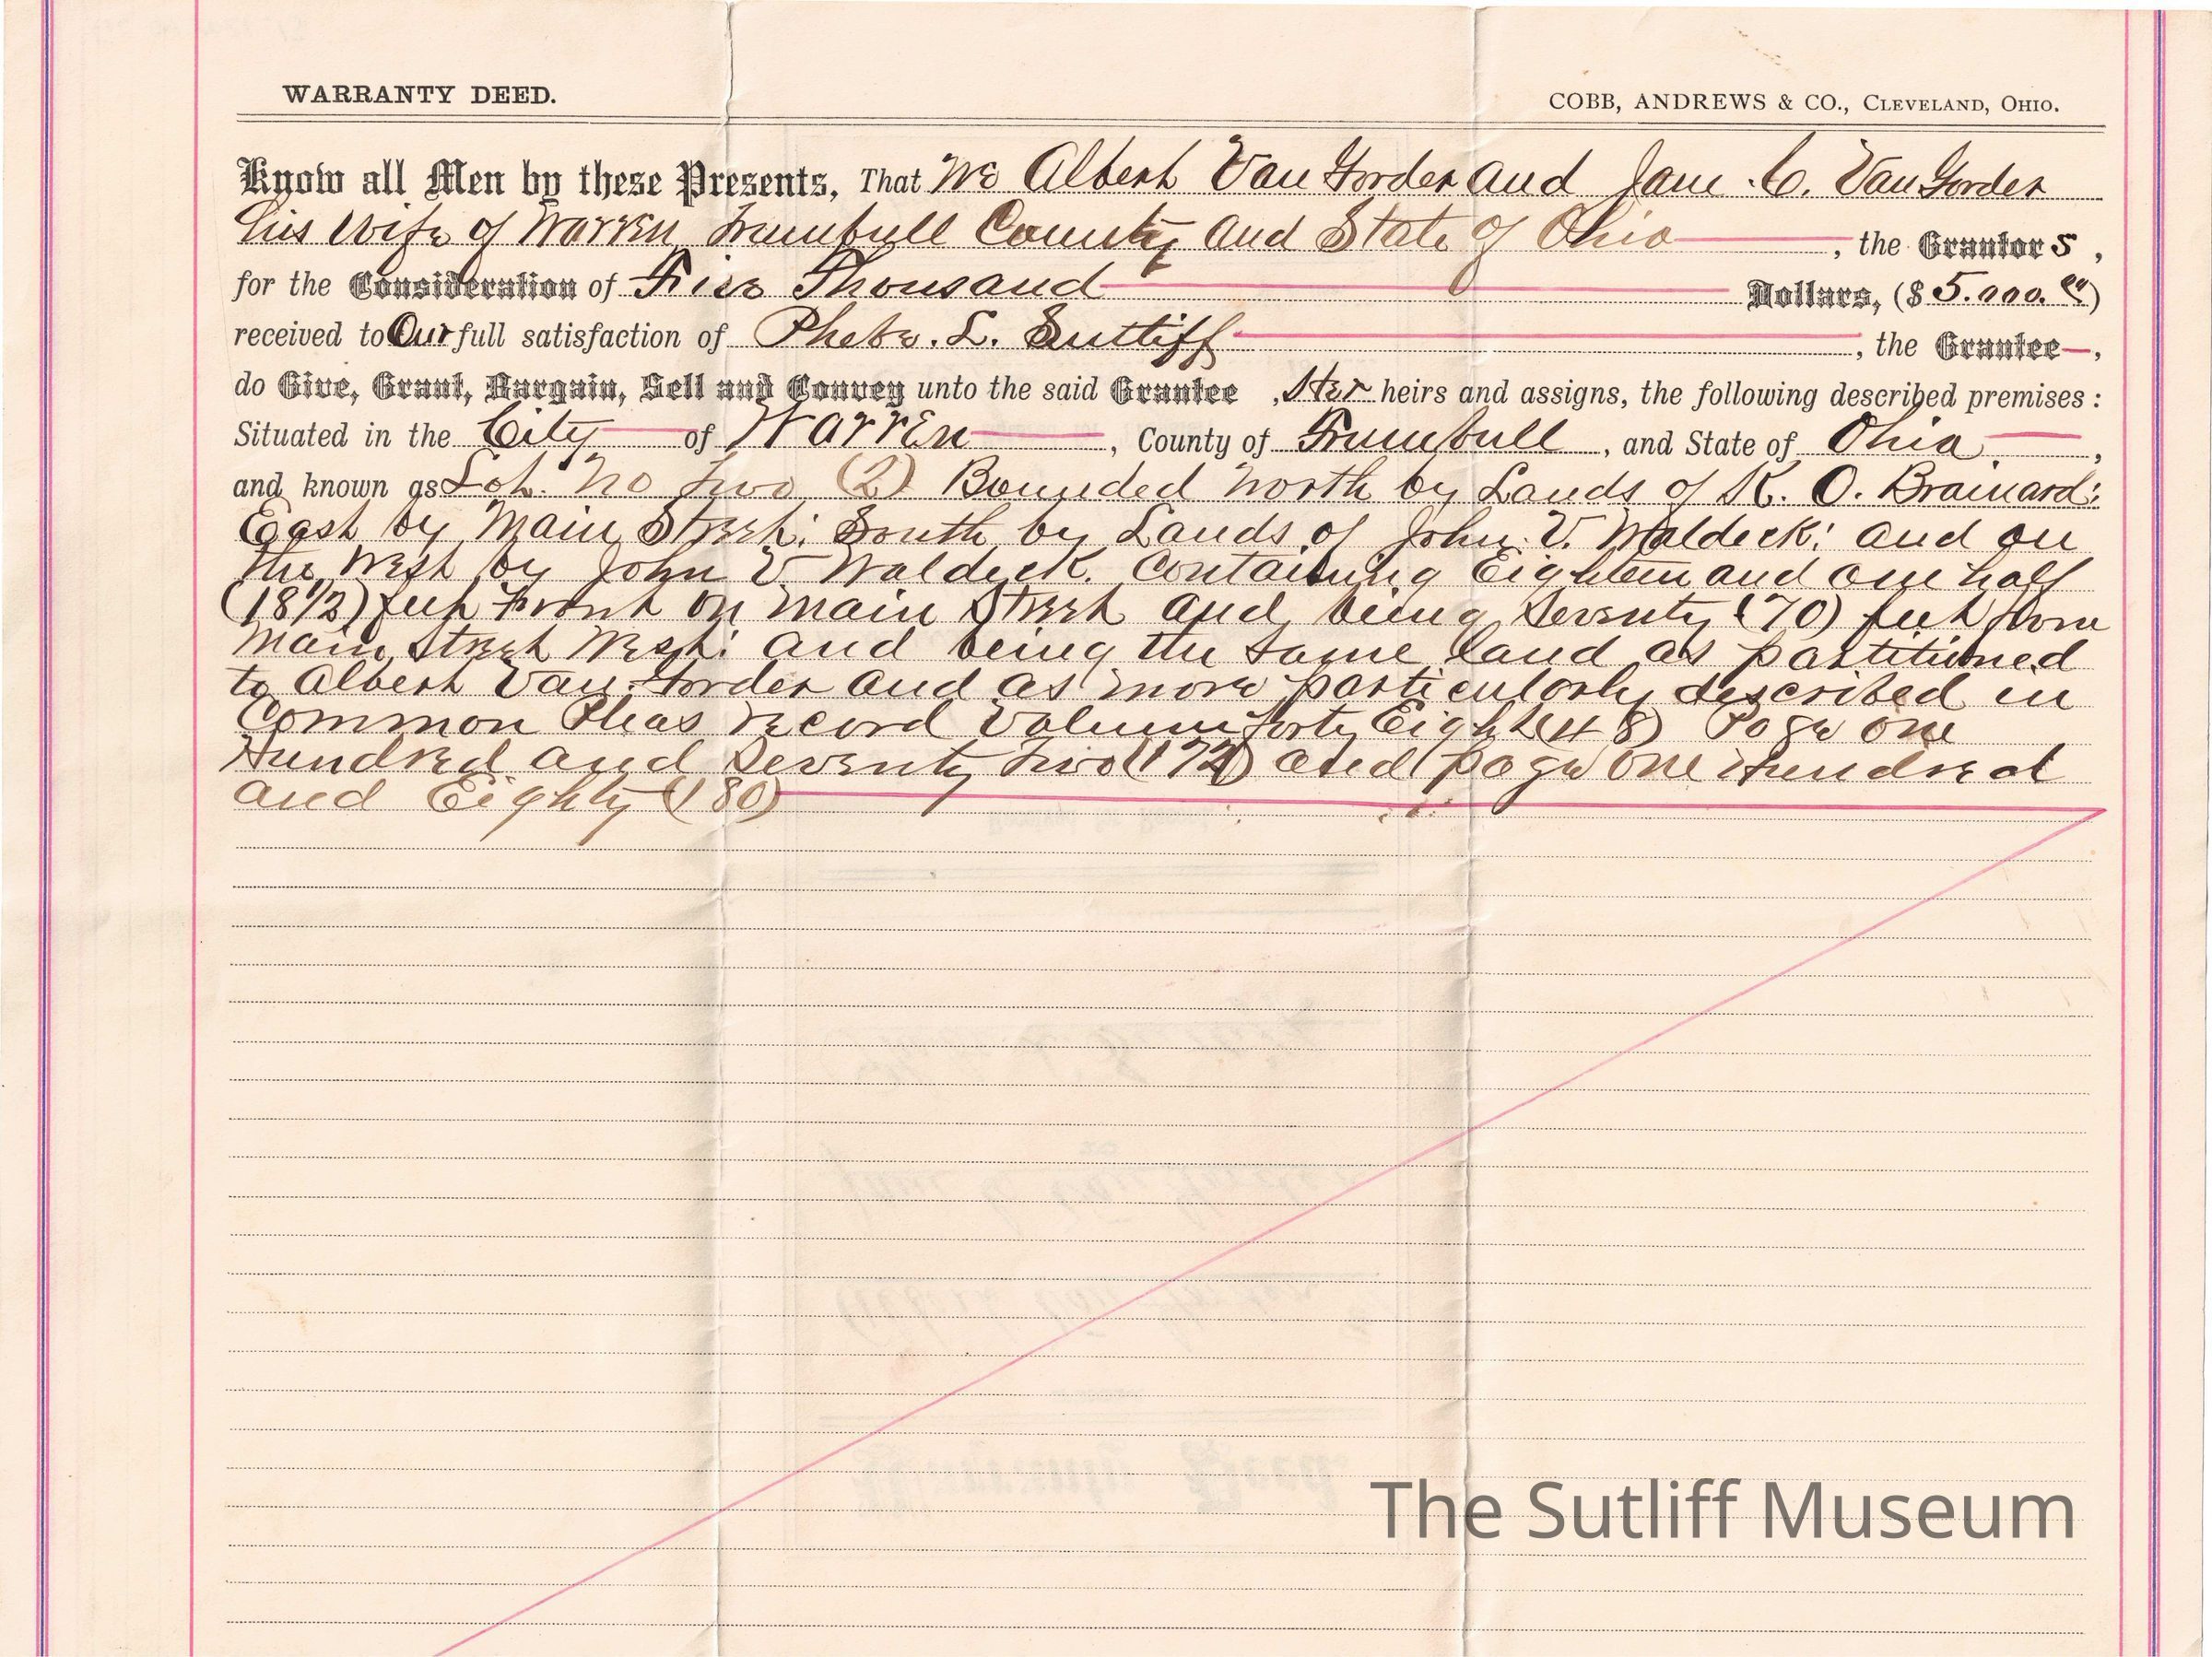 WARRANTY DEED.
COBB, ANDREWS & CO., CLEVELAND, OHIO.
Know all Men by these Presents, That We Albert Van Gorder and Jane C. Van Gorder
his Wife of Warren Trumbull County and State of Ohio, the Grantors,
for the Consideration of Five Thousand Dollars, ($5.000.00)
received to Our full satisfaction of Phebe. L. Sutliff, the Grantee,
do Give, Grant, Bargain, Sell and Convey unto the said Grantee, Her heirs and assigns, the following described premises:
Situated in the City of Warren, County of Trumbull, and State of Ohio,
and known as Lot. No Two (2) Bounded North by Lands of K. O. Brainard;
East by Main Street; South by Lands of John V. Waldeck; and on
the West by John V Waldeck. Containing Eighteen and one half
(18 1/2) feet Front on Main Street and being Seventy (70) feet from
Main Street West; and being the same land as partitioned
to Albert Van Gorder and as more particularly described in
Common Pleas record Volume forty Eight (48) Page one
Hundred and Seventy Two (172) and page One Hundred
and Eighty (180)
The Sutliff Museum